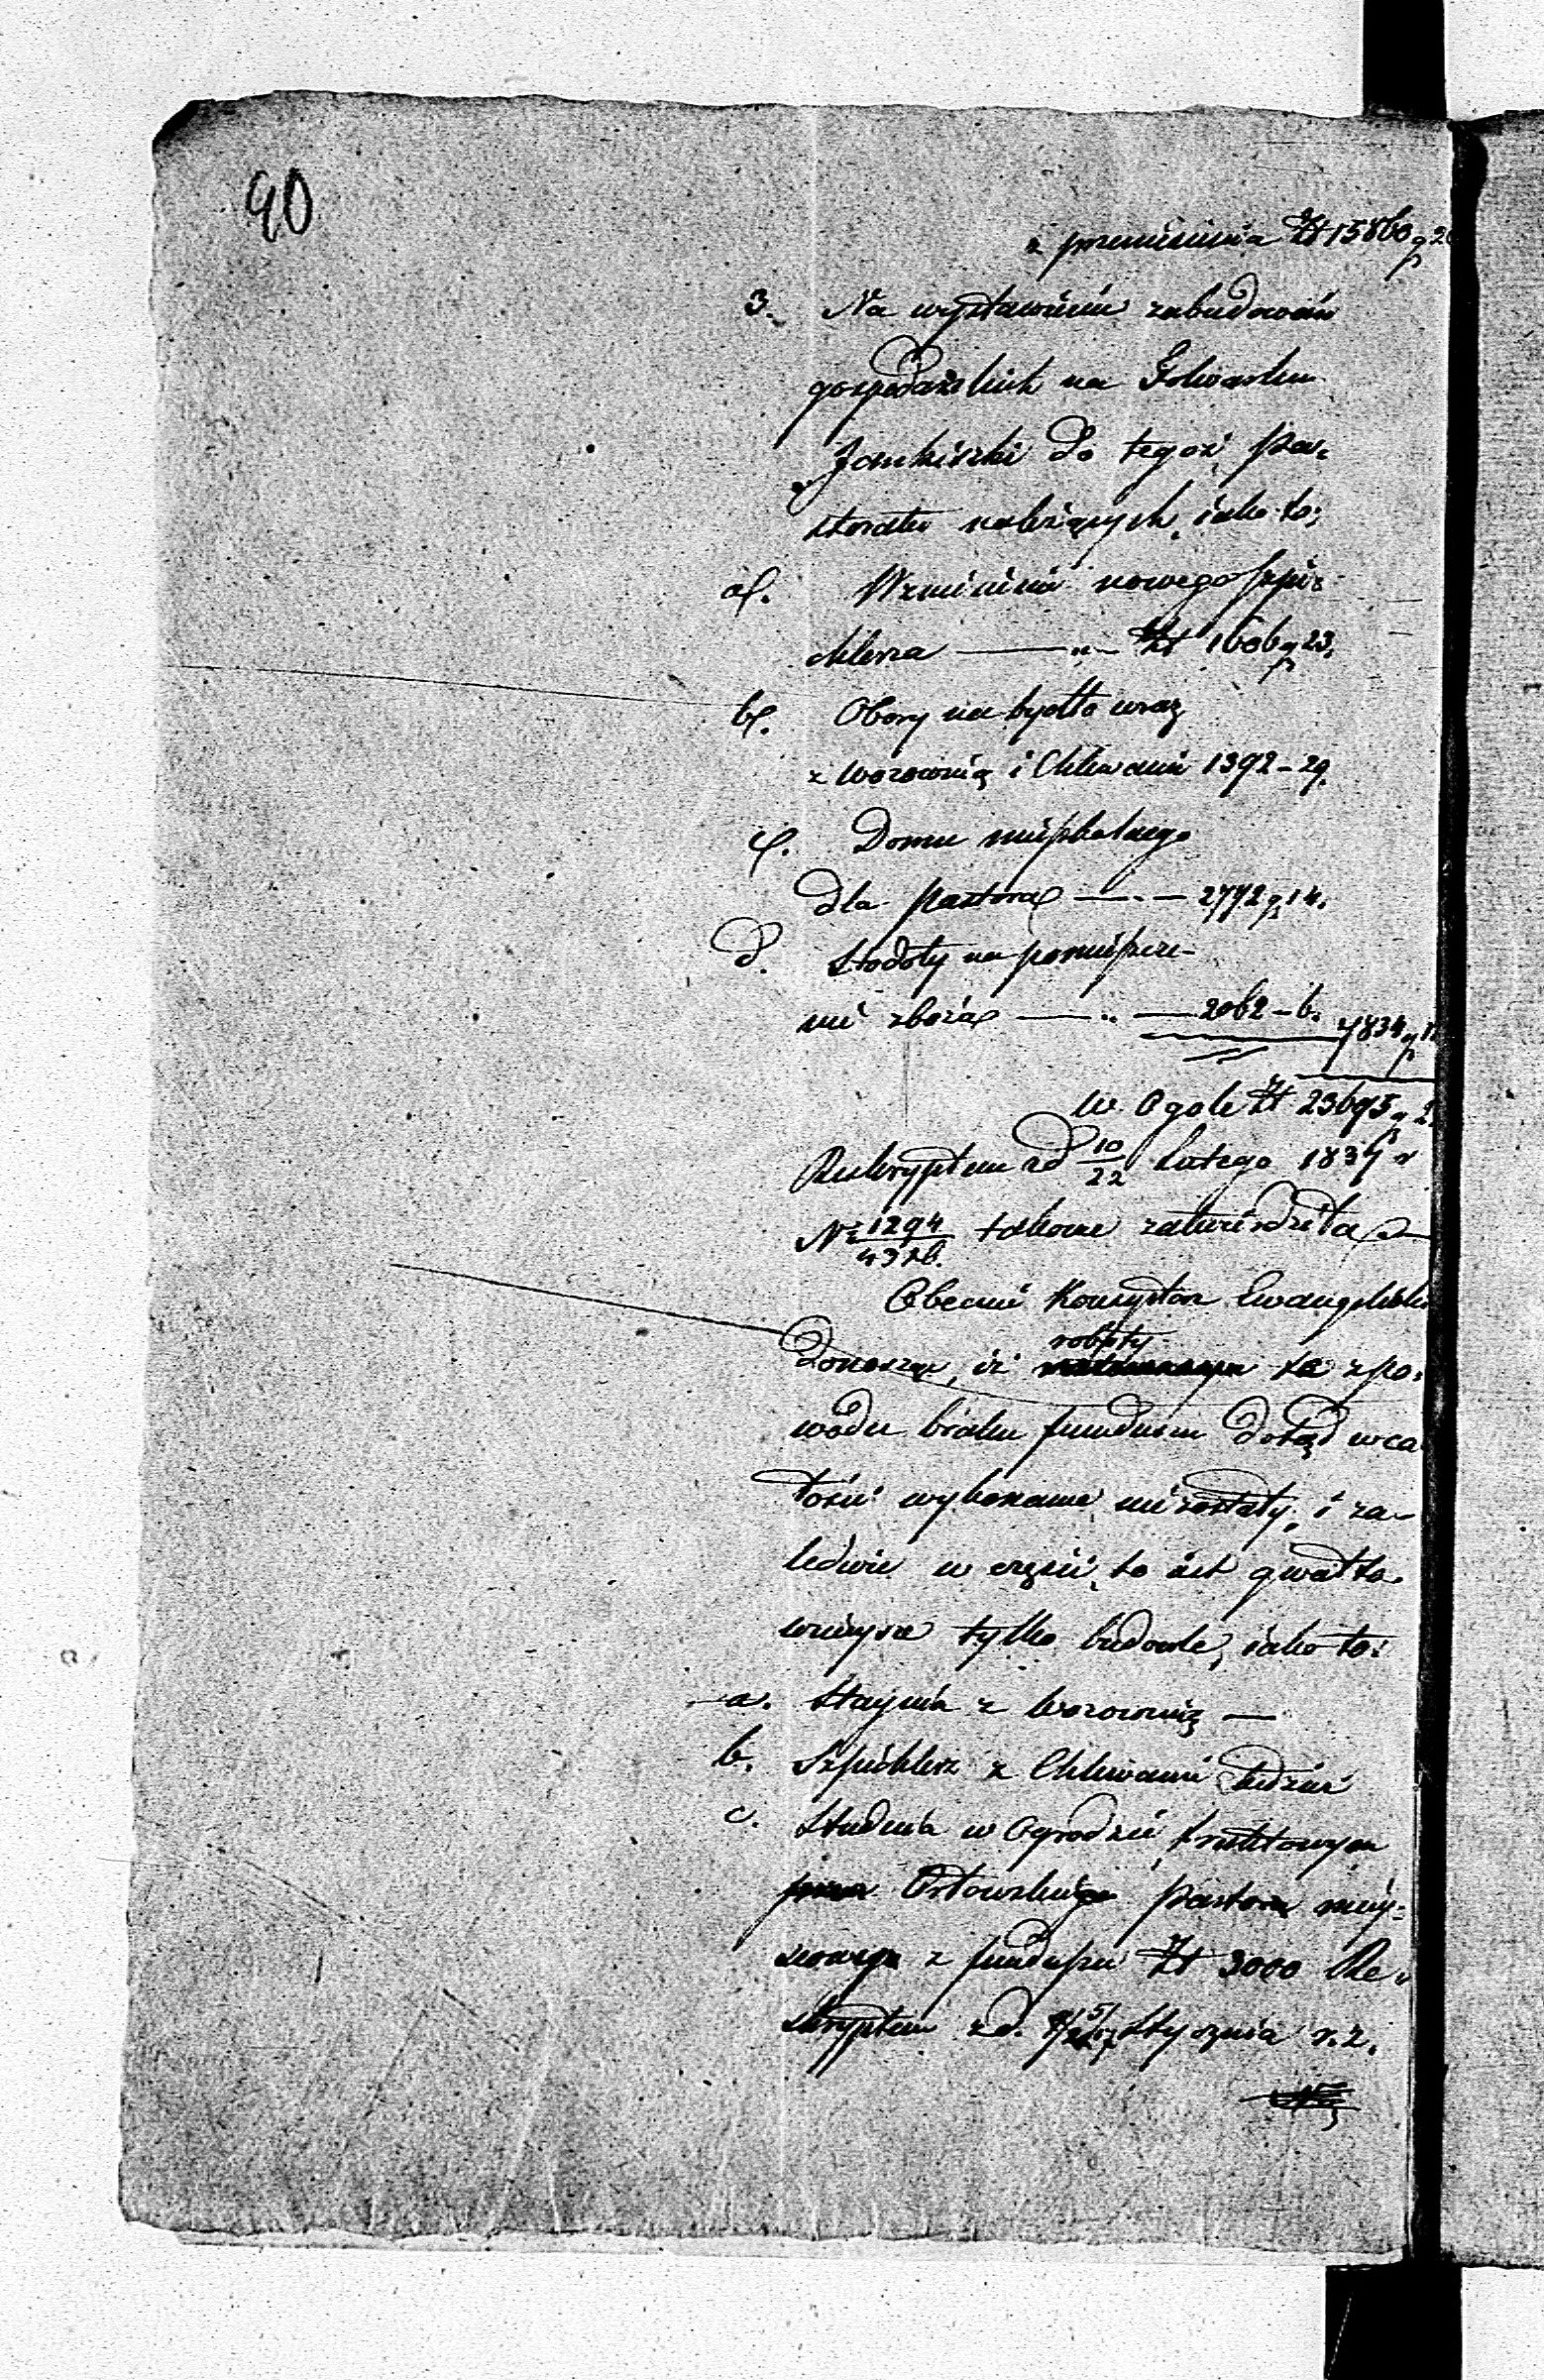 90
z przeniesienia Zł 15860 g 20
3. Na wystawienie zabudowań
gospodarskich na Folwarku
Jankiszki do tegoż Pa-
storatu należących, iako to:
a/. Wzniesienia nowego Szpi-
chlerza — „ — Zł 1606 g 23.
b/. Obory na bydło wraz
z Wozownią i Chlewami 1392 – 29.
c/. Domu mieszkalnego
dla Pastora — „ — 2772 g 14.
d. Stodoły na pomieszcze-
nie zboża — „ — 2062 – 6. 7834 g
W Ogóle Zł 23695 g 2
Reskryptem z d 10/22 Lutego 1837 r
Nr 1294/4326. takowe zatwierdziła —
Obecnie Konsystorz Ewangelicki
roboty
donosząc, iż te z po-
wodu braku funduszu dotąd w ca
łości wykonane nie zostały, i za-
ledwie w części, to iest gwałto-
wnieysze tylko budowle, iako to:
a. Staynia z Wozownią —
b. Szpichlerz z Chlewami tudzież
c. Studnia w Ogrodzie fruktowym
przez Ostowskiego Pastora miey-
scowego z funduszu Zł 3000 Re-
skryptem z d. Stycznia r. z.